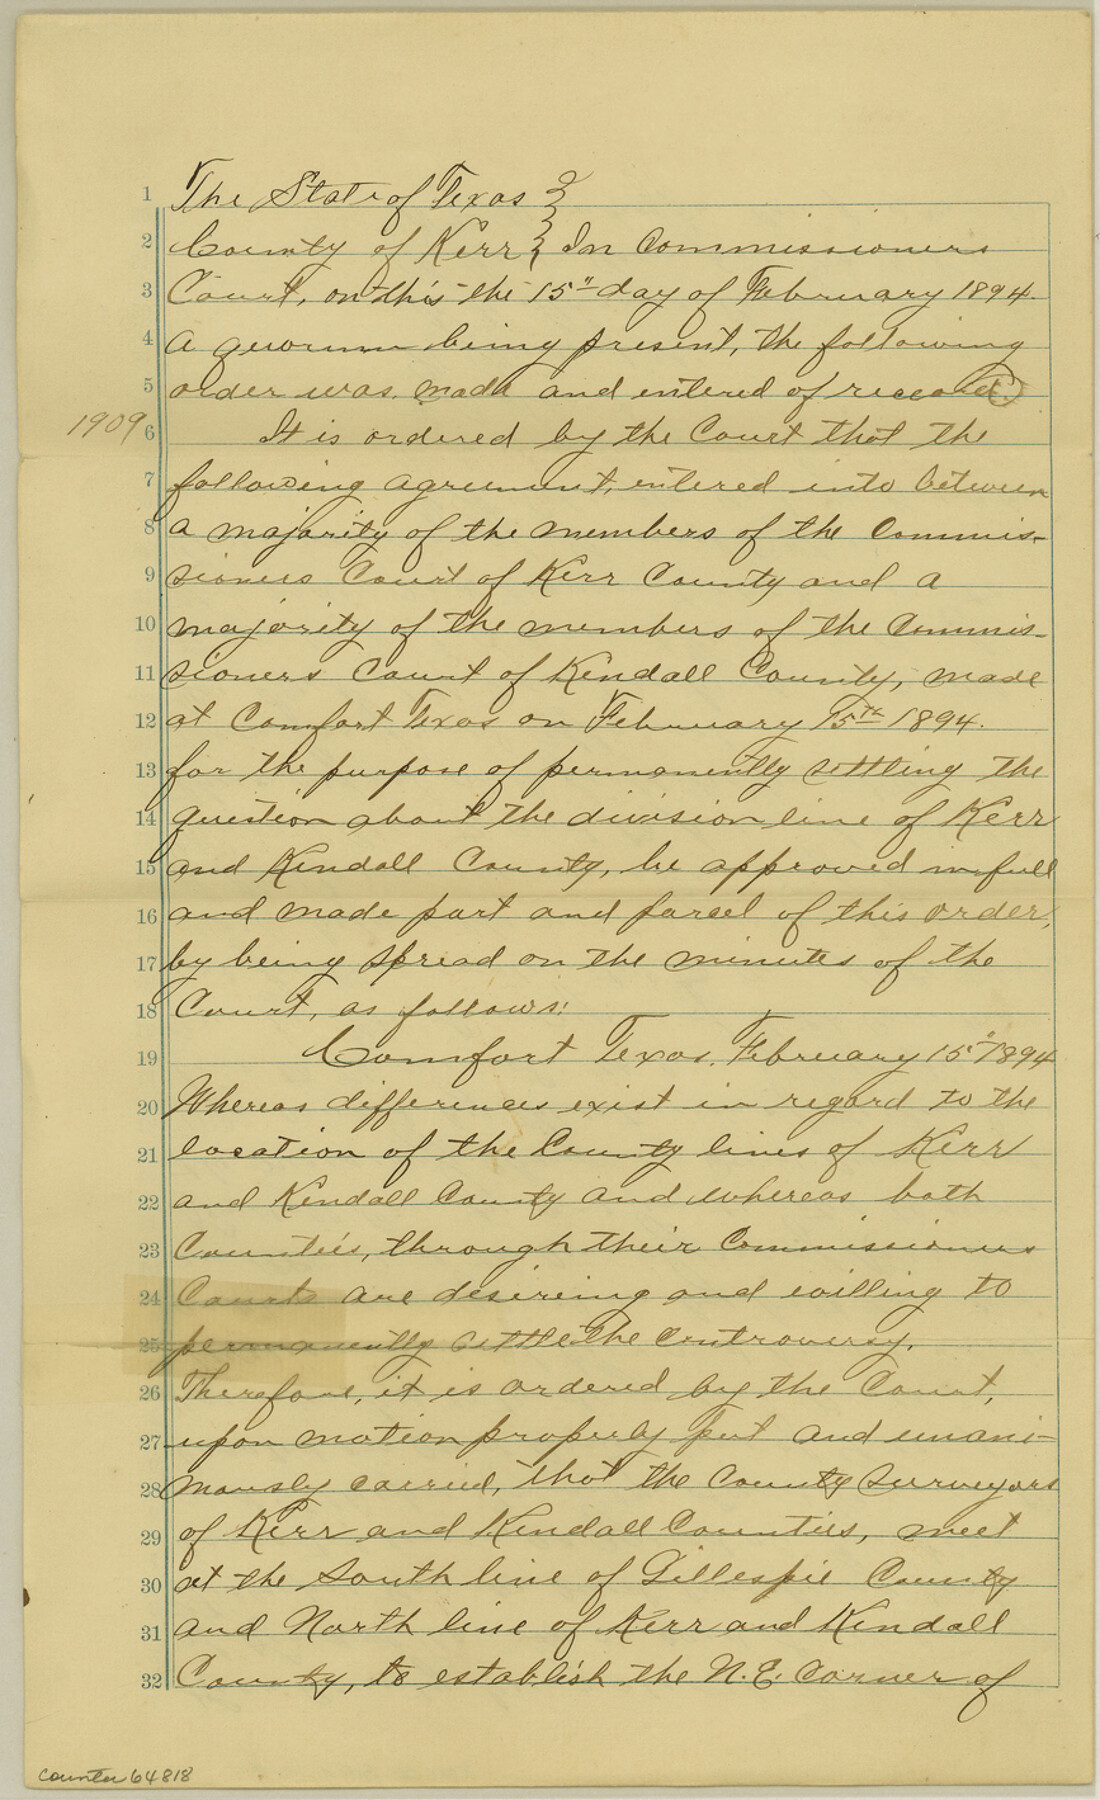 1 The State of Texas }
2 County of Kerr } In Commissioners
3 Court, on this the 15" day of February 1894.
4 A quorum being present, the following
5 order was made and entered of record.
1909
6 It is ordered by the Court that the
7 following agreement, entered into between
8 a majority of the members of the Commis-
9 sioners Court of Kerr County and a
10 majority of the members of the Commis-
11 sioners Court of Kendall County, made
12 at Comfort Texas on February 15th 1894.
13 for the purpose of permanently settling the
14 question about the division line of Kerr
15 and Kendall County, be approved in full
16 and made part and parcel of this order,
17 by being spread on the minutes of the
18 Court, as follows:
19 Comfort Texas, February 15" 1894
20 Whereas differences exist in regard to the
21 location of the County lines of Kerr
22 and Kendall County and whereas both
23 Counties, through their Commissioners
24 Courts are desireing and willing to
25 permanently settle the controversy.
26 Therefore, it is ordered by the Court,
27 upon motion properly put and unani-
28 mously carried, that the County Surveyors
29 of Kerr and Kendall Counties, meet
30 at the South line of Gillespie County
31 and North line of Kerr and Kendall
32 County, to establish the N.E. Corner of
counter 64818